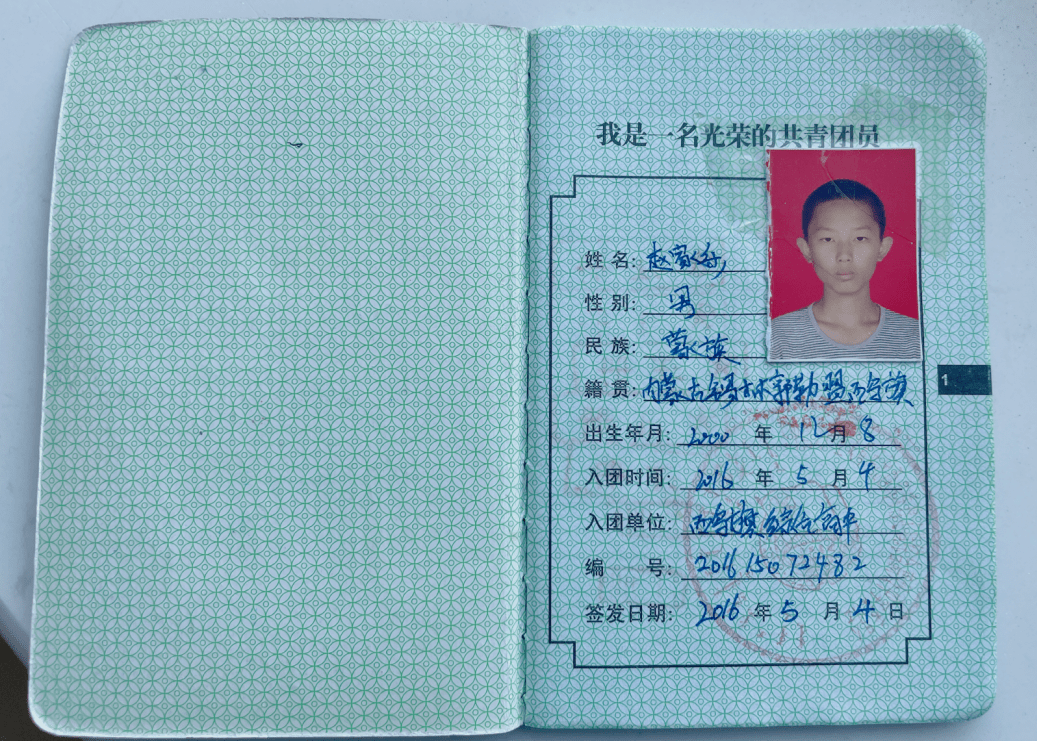 我是一名光荣的共青团员
姓名: 赵家
性别: 男
民族: 蒙族
籍贯: 内蒙古锡林郭勒盟西乌旗
出生年月: 2000 年 12 月 8
入团时间: 2016 年 5 月 4
入团单位: 西乌旗综合高中
编 号: 201615072482
签发日期: 2016 年 5 月 4 日
1